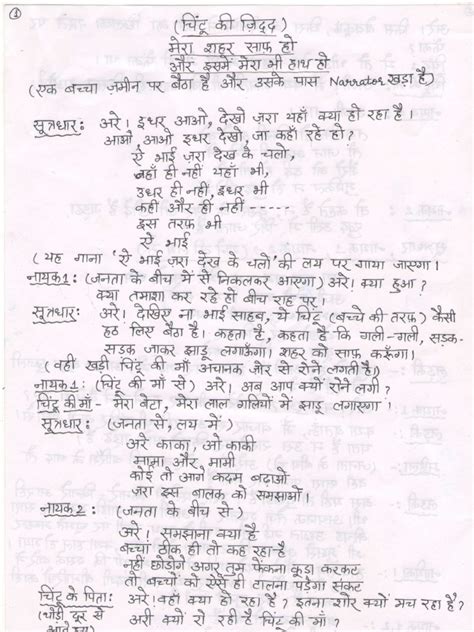 ①
(चिंटू की ज़िद्द)
मेरा शहर साफ़ हो
और इसमें मेरा भी हाथ हो
(एक बच्चा ज़मीन पर बैठा है और उसके पास Narrator खड़ा है)
सूत्रधार: अरे! इधर आओ, देखो ज़रा यहाँ क्या हो रहा है।
आओ, आओ इधर देखो, जा कहाँ रहे हो?
ऐ भाई ज़रा देख के चलो,
वहाँ ही नहीं यहाँ भी,
उधर ही नहीं, इधर भी
कहीं और ही नहीं ------
इस तरफ़ भी
ऐ भाई
(यह गाना 'ऐ भाई ज़रा देख के चलो' की लय पर गाया जाएगा।
नायक1: (जनता के बीच में से निकलकर आएगा) अरे! क्या हुआ?
क्या तमाशा कर रहे हो बीच राह पर।
सूत्रधार: अरे! देखिए ना भाई साहब, ये चिंटू (बच्चे की तरफ़) कैसी
हठ लिए बैठा है। कहता है, कहता है कि गली-गली, सड़क-
सड़क जाकर झाड़ू लगाऊँगा। शहर को साफ़ करूँगा।
(वहीं खड़ी चिंटू की माँ अचानक ज़ोर से रोने लगती है)
नायक1: (चिंटू की माँ से) अरे! अब आप क्यों रोने लगी?
चिंटू की माँ- मेरा बेटा, मेरा लाल गलियों में झाडू लगाएगा।
सूत्रधार: (जनता से, लय में)
अरे काका, ओ काकी
मामा और मामी
कोई तो आगे कदम बढ़ाओ
ज़रा इस बालक को समझाओ।
नायक2: (जनता के बीच से)
अरे! समझाना क्या है
बच्चा ठीक ही तो कह रहा है
नहीं छोड़ोगे अगर तुम फेंकना कूड़ा करकट
तो बच्चों को ऐसे ही टालना पड़ेगा संकट
चिंटू के पिता: अरे! यहाँ क्या हो रहा है? इतना शोर क्यों मच रहा है?
(थोड़ी दूर से अरी क्यों रो रही है चिंटू की माँ?